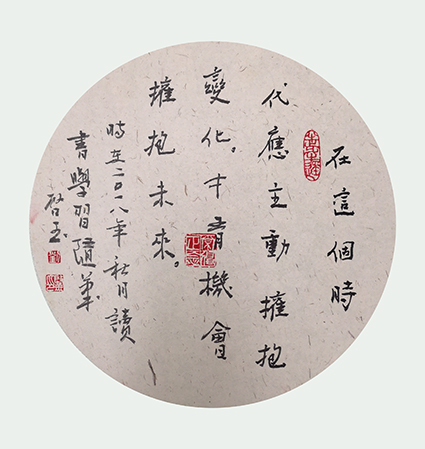 在這個時
代應主動擁抱
變化。才有機會
擁抱未來。
時在二〇一八年秋月讀
書學習隨筆
啓玉